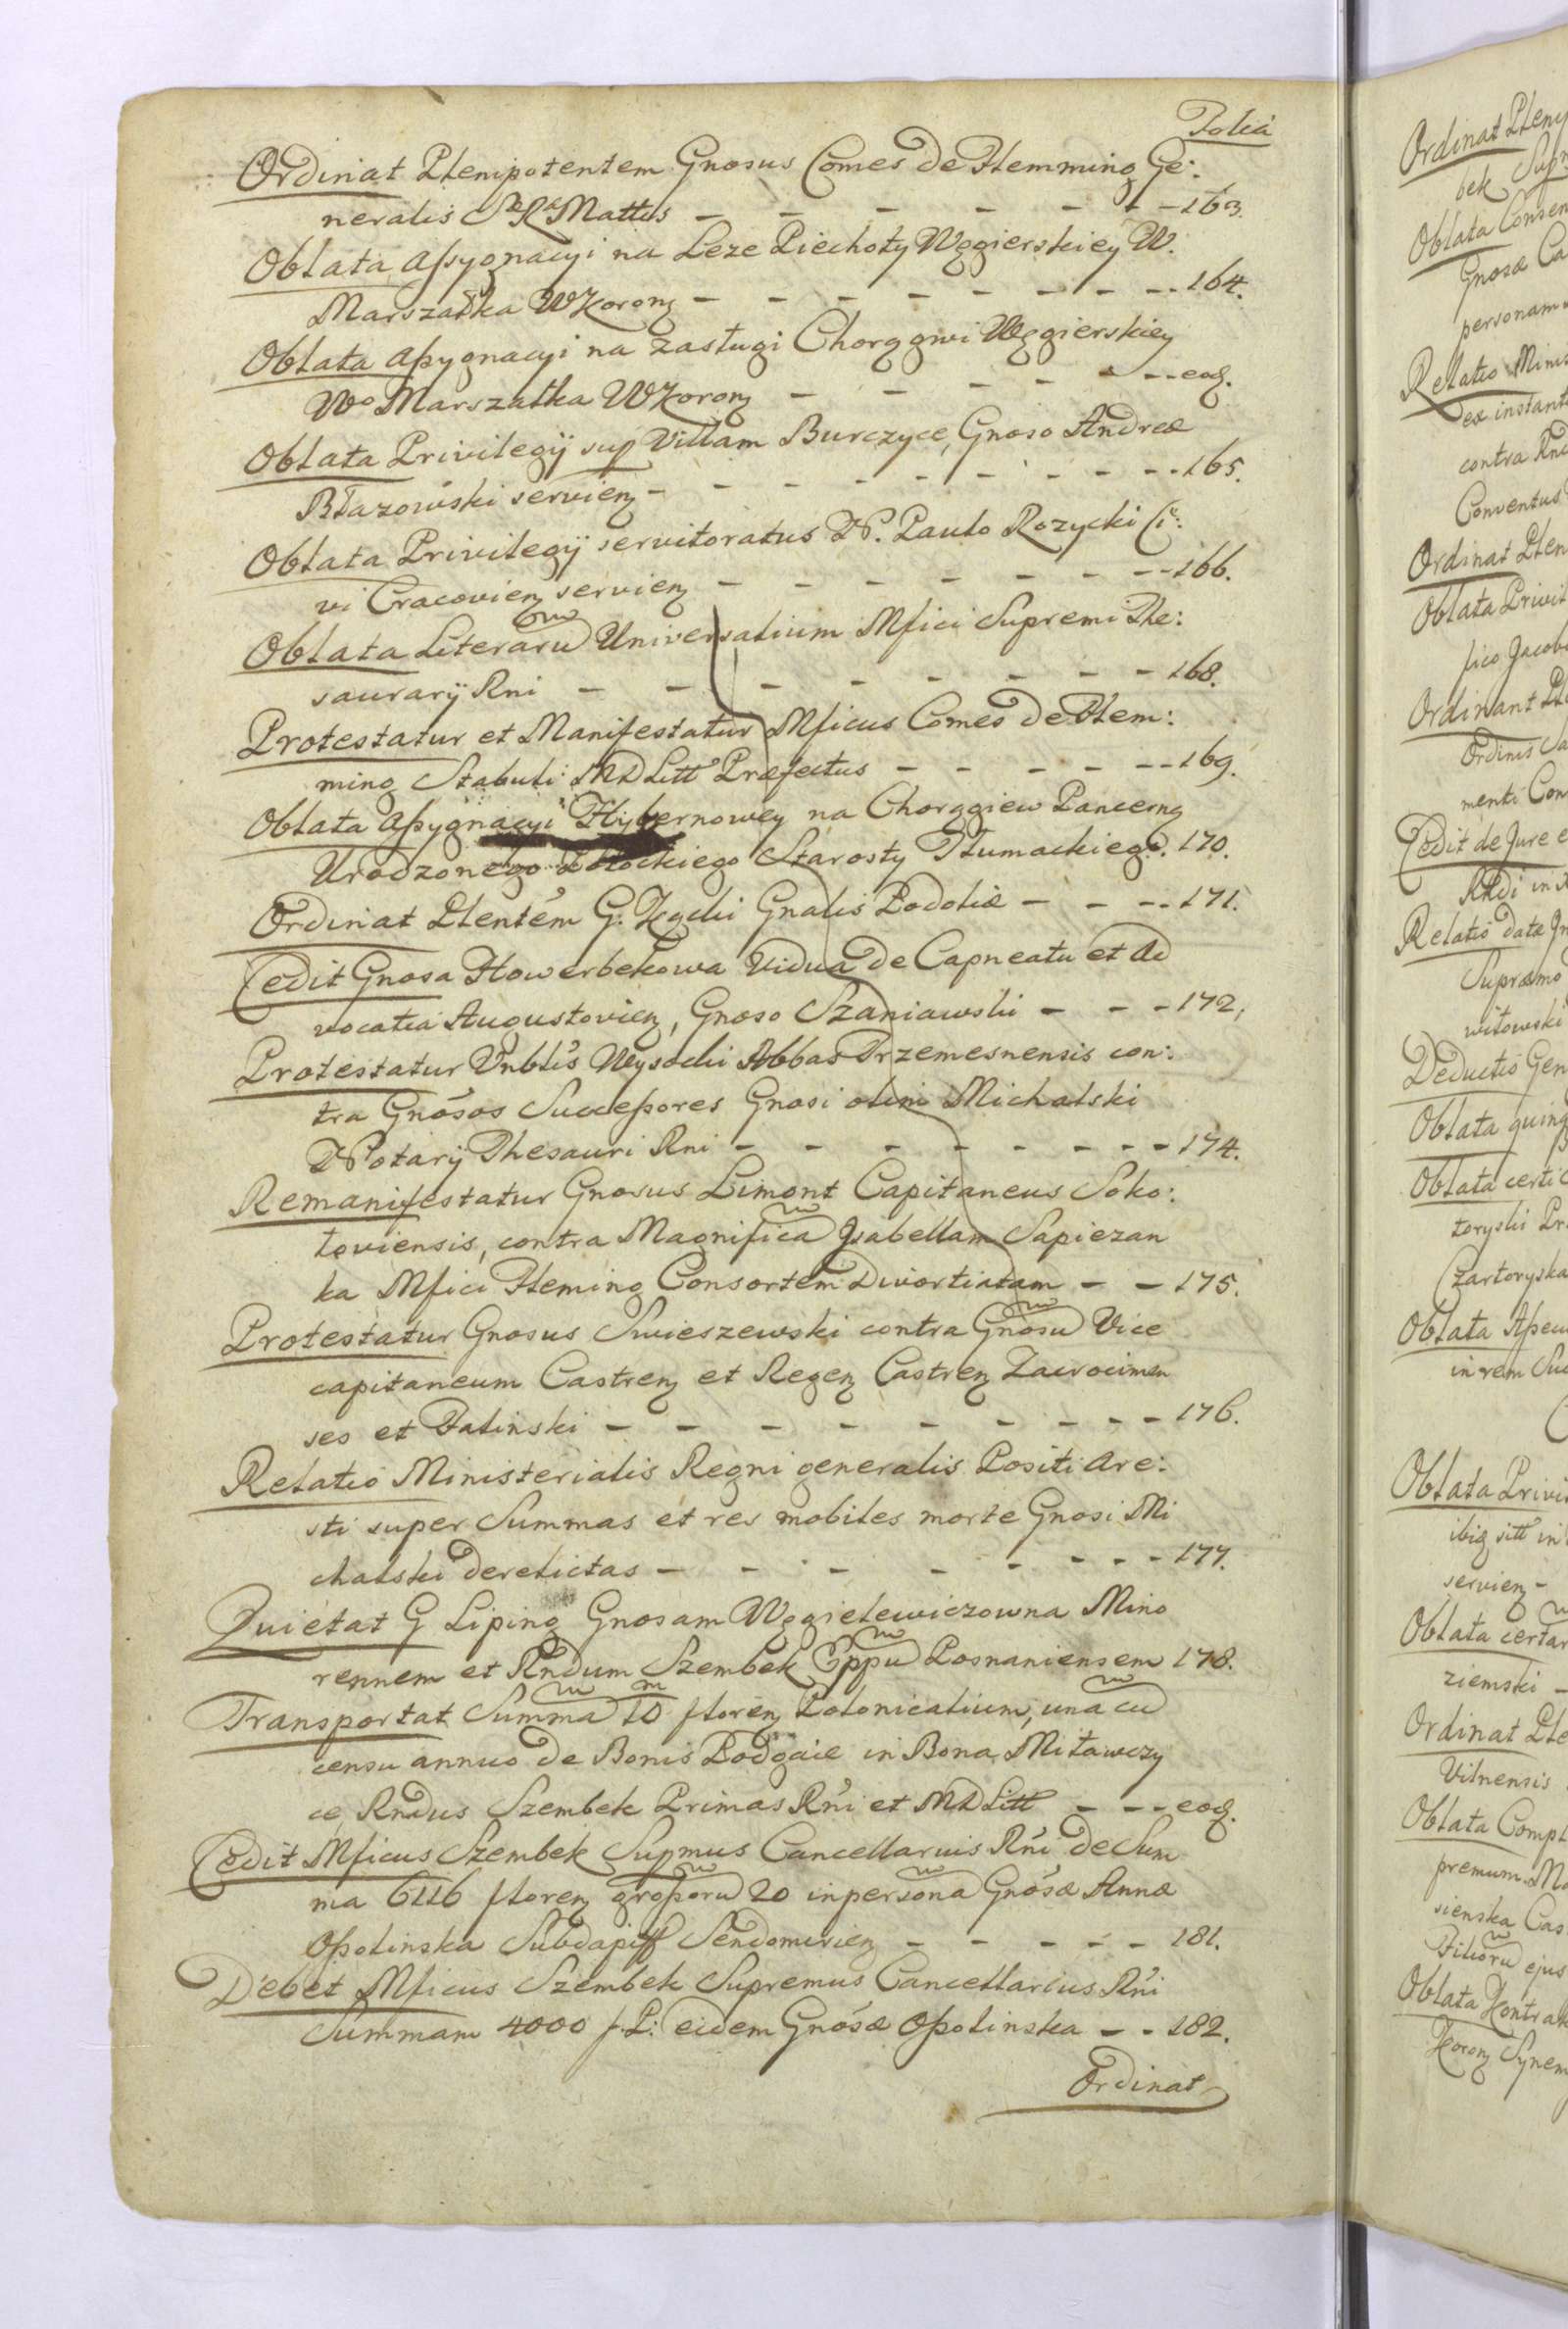 Folia
Ordinat Plenipotentem Gnosus Comes de Flemming Ge:
neralis SæRæMattis - - - - - - - 163.
Oblata Assygnacyi na Leze Piechoty Węgierskiey W.
Marszałka WKorong - - - - - - - - 164.
Oblata Assygnacyi na zasługi Chorągwi Węgierskiey
Wo Marszałka WKorong - - - - - - - eod.
Oblata Privilegij sup Villam Burczyce, Gnoso Andreæ
Błazowski servieng - - - - - - - - - 165.
Oblata Privilegij servitoratus N. Paulo Rozycki Ci:
vi Cracovieng servieng - - - - - - - - 166.
Oblata Literaru Universalium Mfici Supremi The:
saurarij Rni - - - - - - - - 168.
Protestatur et Manifestatur Mficus Comes de Flem:
ming Stabuli MDLitt Præfectus - - - - - - 169.
Oblata Assygnacyi Hybernowey na Chorągiew Pancerną
Urodzonego Potockiego Starosty Tłumackiego. 170.
Ordinat Plentem G. Kącki Gnalis Podoliæ - - - - 171.
Cedit Gnosa Howerbekowa Vidua de Capneatu et Ad
vocatia Augustovieng, Gnoso Szaniawski - - - 172.
Protestatur Vnblis Wysocki Abbas Trzemesnensis con:
tra Gnosos Successores Gnosi olim Michalski
Notarij Thesauri Rni - - - - - - - - - 174.
Remanifestatur Gnosus Limont Capitaneus Soko:
loviensis, contra Magnifica Jsabellam Sapiezan
ka Mfici Fleming Consortem Divortiatam - - 175.
Protestatur Gnosus Swieszewski contra Gnosu Vice
capitaneum Castreng et Regeng Castreng Zacrocimen
ses et Falinski - - - - - - - - - 176.
Relatio Ministerialis Regni generalis Positi Are:
sti super Summas et res mobiles morte Gnosi Mi
chalski derelictas - - - - - - - - - 177.
Quietat G Liping Gnosam Węgielewiczowna Mino
rennem et Rndum Szembek Eppu Posnaniensem 178.
Transportat Summa 10 floreng Polonicalium, una cu
censu annuo de Bonis Podgaie in Bona Miławczy
ce, Rndus Szembek Primas Rni et MDLitt - - - eod.
Cedit Mficus Szembek Supmus Cancellarius Rni de Sum
ma 6116 floreng grossoru 20 in persona Gnosæ Annæ
Ossolinska Subdapiff Sendomirieng - - - - - 181.
Debet Mficus Szembek Supremus Cancellarius Rni
Summam 4000 f P: eidem Gnosæ Ossolinska - - 182.
Ordinat
Ordinat Pleni
bek
Oblata Consen
Gnosæ Ca
personam
Relatio Minis
ex instanti
contra Rnd
Conventus
Ordinat Plen
Oblata Privil
fico Jacob
Ordinant Ple
Ordinis Sa
menti Con
Cedit de Jure e
Relatio datæ Jn
Supremo
witowski
Deductio Gen
Oblata quing
Oblata certi C
toryski Pr
Czartoryska
Oblata Assecu
in rem Suc
Oblata Privi
servieng -
Oblata certar
ziemski -
Ordinat Ple
Vilnensis
Oblata Compl
premum Ma
sienska Cas
Filioru ejus
Oblata Kontrak
Korong Synem